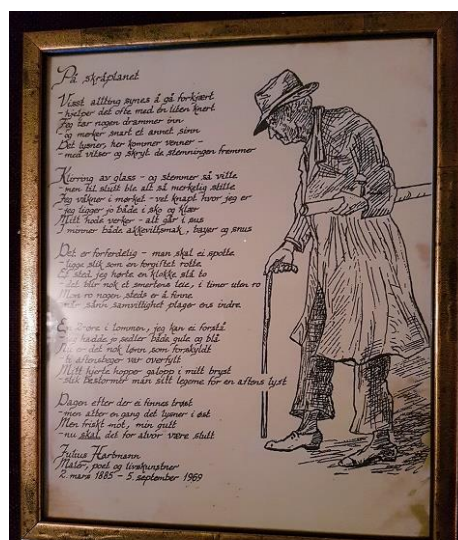 På skråplanet
Visst allting synes å gå forkjært
- hjelper det ofte med en liten knert
Jeg tar nogen drammer inn
og merker snart et annet sinn
Det lysner, her kommer venner -
- med vitser og skryt de stemningen fremmer
Klirring av glass - og stemmer så ville
- men til slutt ble alt så merkelig stille
Jeg våkner i mørket - vet knapt hvor jeg er -
- jeg ligger jo både i sko og klær
Mitt hode verker - alt går i sus
I munnen både akkevittsmak, bayer og snus
Det er forferdelig - man skal ei spotte
- ligge slik som en forgiftet rotte
Et sted jeg hørte en klokke slå to
- det blir nok et smertens leie, i timer uten ro
Mon ro nogen steds er å finne
- når sånn samvittighet plager ens indre
En 2-øre i lommen, jeg kan ei forstå
Jeg hadde jo sedler både gule og blå
Alt er det nok lønn som forskyldt
aftensbeger var overfylt
Mitt hjerte hopper galopp i mitt bryst
- slik bestormer man sitt legeme for en aftens lyst
Dagen efter der ei finnes trøst
- men atter en gang det lysner i øst
Men friskt mot, min gutt
- nu skal det for alvor være slutt
Julius Hartmann
Maler, poet og livskunstner
2. mars 1885 - 5. september 1969